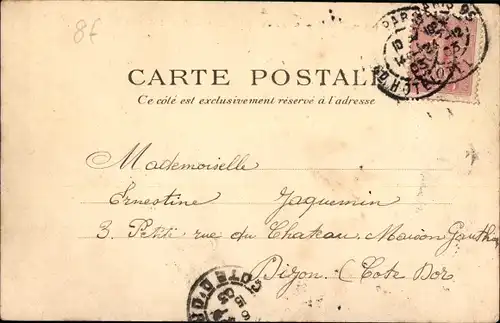 8€
CARTE POSTALE
Ce côté est exclusivement réservé à l'adresse
Mademoiselle
Ernestine Jaquemin
3. Petite rue du Chateau. Maison Gauthi
Dijon. (Cote Dor
PARIS
COTE D'OR